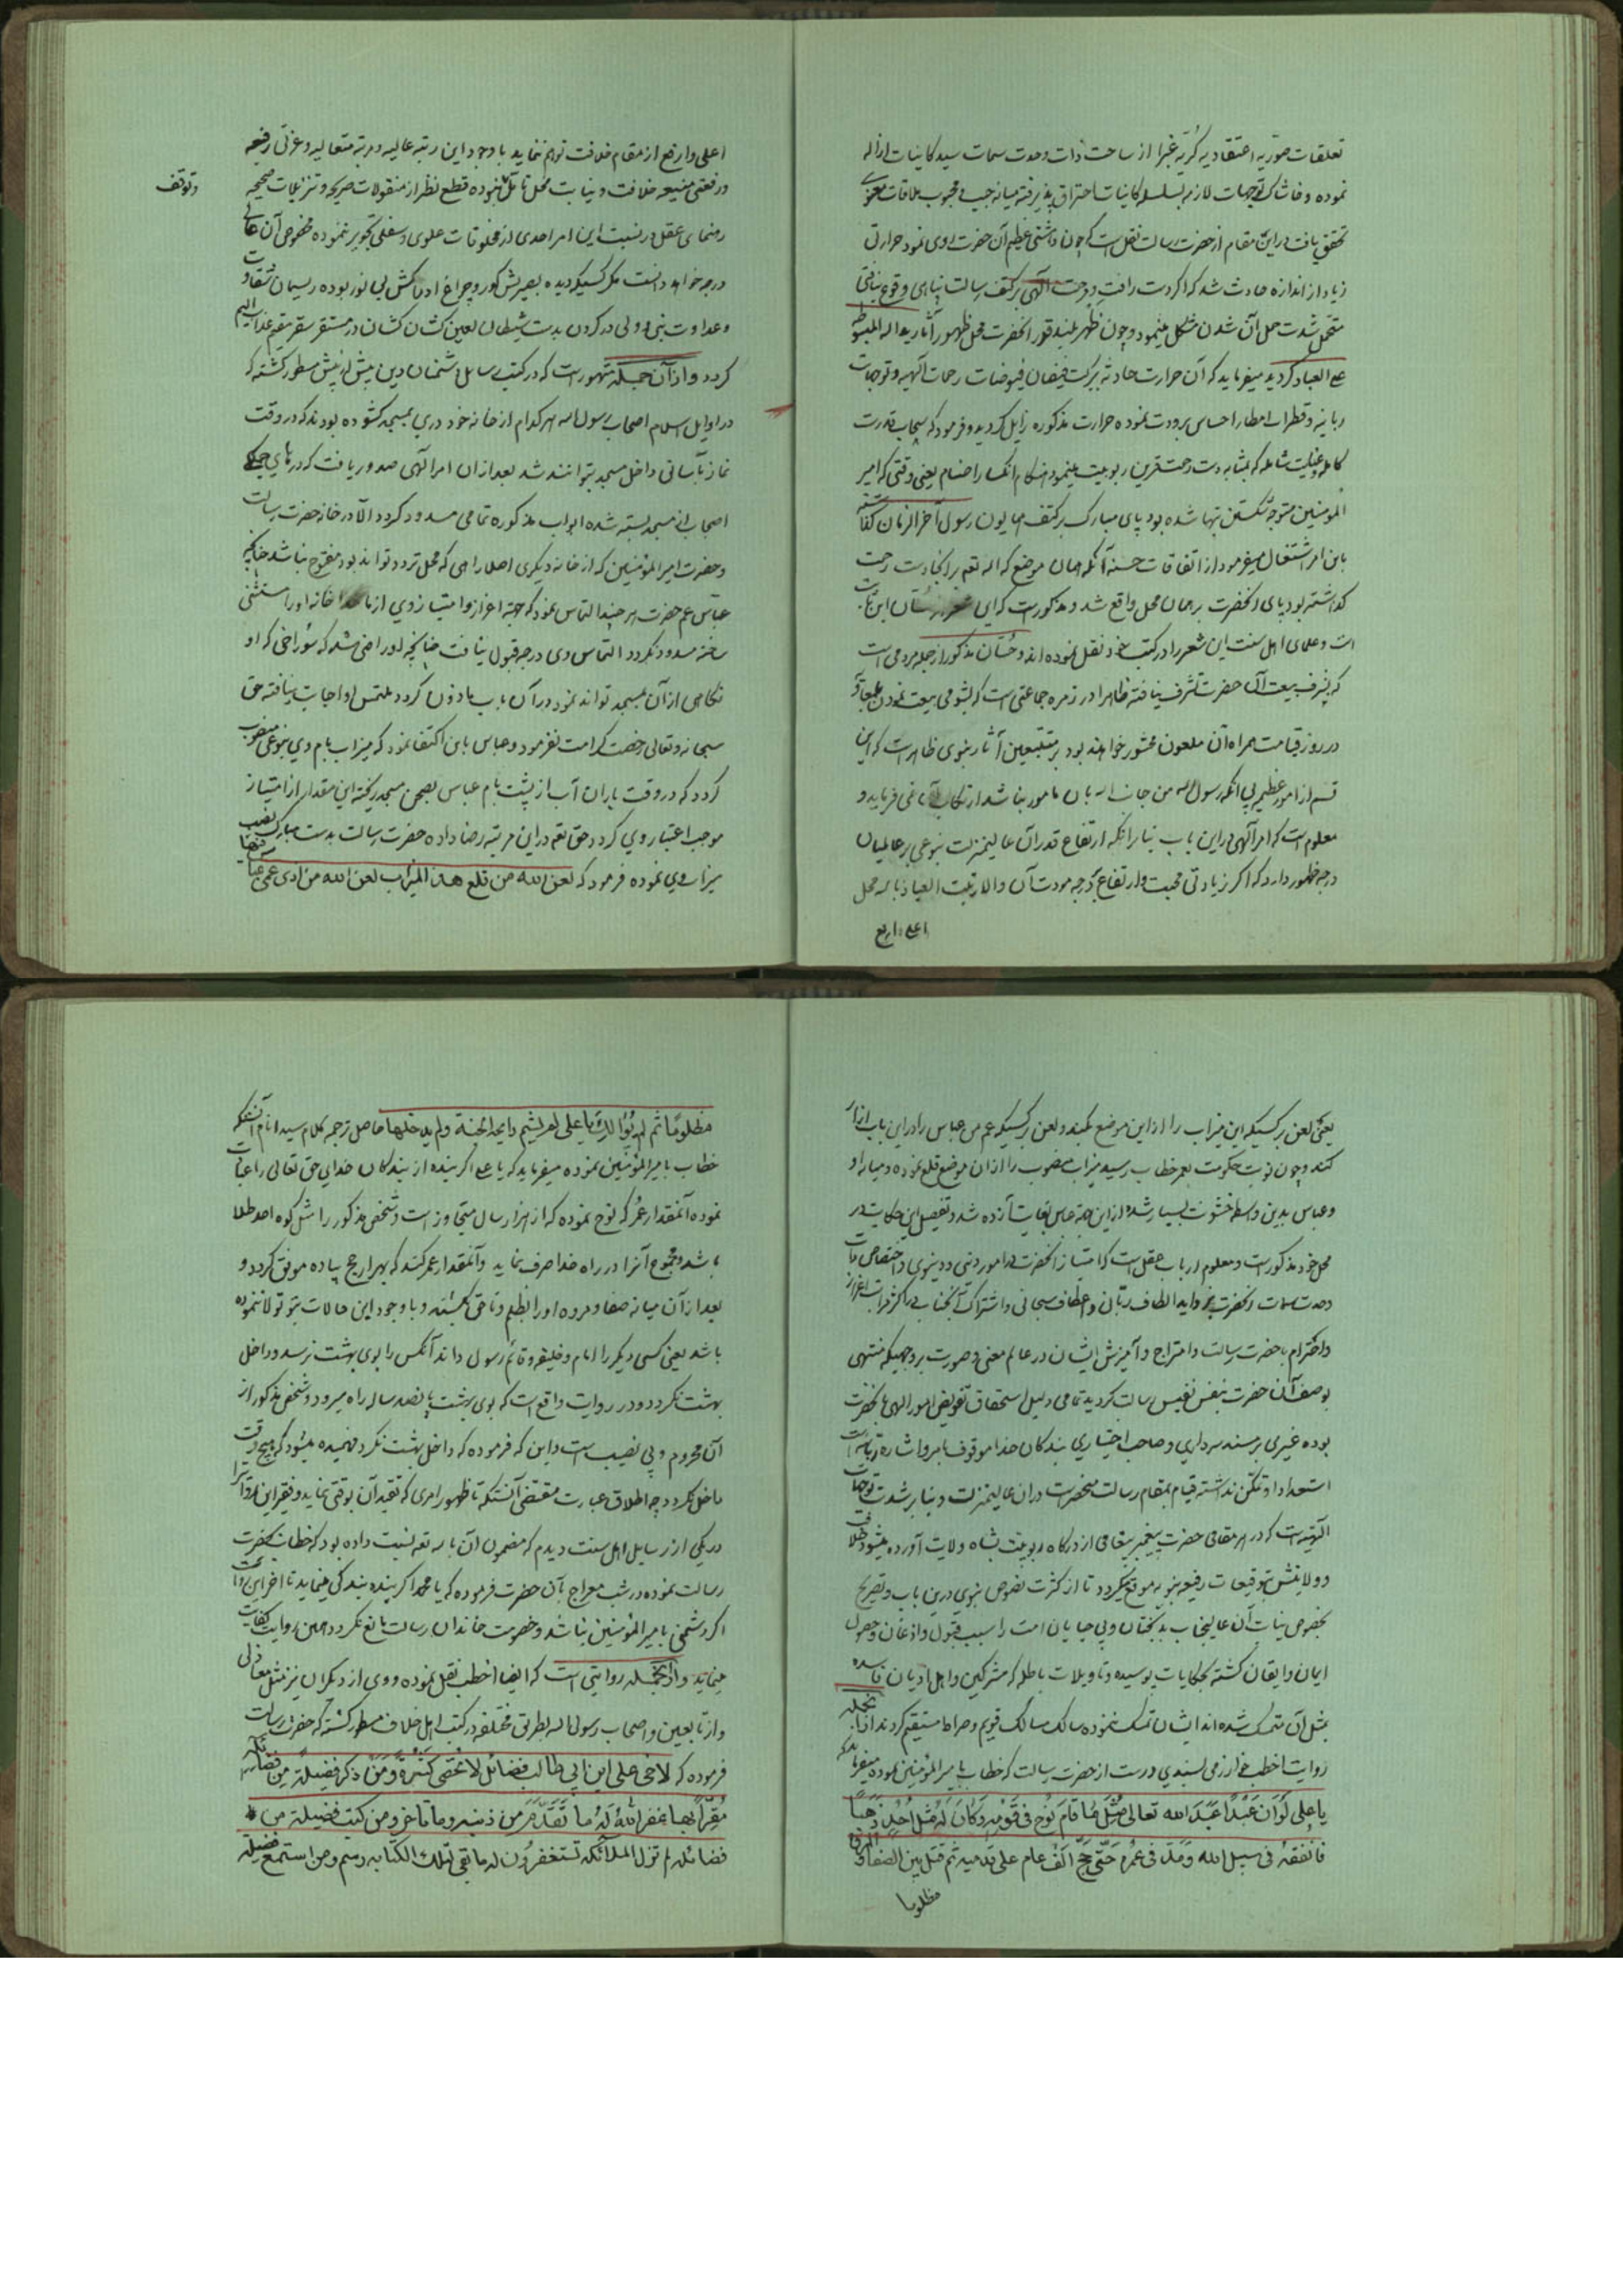 تعلقات صوریه اعتقادیه کریه غبرا از ساحت ذات وحدت سمات سید کاینات ازاله
نموده و خاشاک توجهات لازمه بسلسله کاینات احتراق پذیرفته میانه حبیب و محبوب ملاقات معنوی
تحقق یافت در این مقام از حضرت رسالت نقل است که چون داشتی عظیم آن حضرت روی نمود حرارتی
زیاد از اندازه حادث شد که اگر دست رافت و رحمت آلهی بر کتف رسالت پناهی وقوع نیافتی
متحمل شدت حمل آن شدن مشکل مینمود و چون ظهر بلند قدر آنحضرت محل ظهور آثار ید الله المبسوطه
علی العباد کردید میفرماید که آن حرارت حادثه ببرکت فیضان فیوضات رحمات آلهیه و توجهات
ربانیه و قطرات امطار احساس برودت نموده حرارت مذکوره زایل کردید و فرمود که سحاب قدرت
کامله و عنایت شامله که بمثابه دست رحمت قرین ربوبیت مینمود هنکام انکسار اصنام یعنی وقتی که امیر
المومنین متوجه شکستن بتها شده بود پای مبارک بر کتف همایون رسول آخر الزمان کذاشته
باین امر اشتغال میفرمود از اتفاقات حسنه آنکه همان موضع که الله تعم برانجا دست رحمت
کذاشته بود پای آنحضرت بر همان محل واقع شد و مذکورست که این شعر از حسان ابن ثابت
است و علمای اهل سنت این شعر را در کتب خود نقل نموده اند و حسان مذکور از جمله مردمی است
که بشرف بیعت آن حضرت تشرف نیافته ظاهرا در زمره جماعتی است که بشومی بیعت نمودن بمعاویه
در روز قیامت همراه آن ملعون محشور خواهند بود بر متتبعین آثار نبوی ظاهرست که این
قسم از امور عظیم بی آنکه رسول الله من جانب الله بان مامور نباشد ارتکاب آن نمی فرماید و
معلوم است که امر آلهی در این باب بنا بر آنکه ارتفاع قدر آن عالیمنزلت بنوعی بر عالمیان
درجه ظهور دارد که اکر زیادتی محبت و ارتفاع درجه مودت آن والا رتبت العیاذ بالله محل
اعلی و ارفع
اعلی و ارفع از مقام خلافت توهم نماید با وجود این رتبه عالیه و مرتبه متعالیه و عزتی رفیعه
و رفعتی منیعه خلافت و نیابت محل تامل نموده قطع نظر از منقولات صریحه و تنزیلات صحیحه
و توقف
رهنمای عقل در نسبت این امر احدی از مخلوقات علوی و سفلی تجویز ننموده مخصوص آن عالی
درجه خواهد دانست مکر کسیکه دیده بصیرتش کور و چراغ ادراکش بی نور بوده ریسمان شقاوت
و عداوت نبی و ولی در کردن بدست شیطان لعین کشان کشان در مستقر سقر مقیم عذاب الیم
کردد و از آن جمله مشهورست که در کتب رسایل دشمنان دین بیش از پیش مسطور کشته که
در اوایل اسلام اصحاب رسول الله هر کدام از خانه خود دری بمسجد کشوده بودند که در وقت
نماز بآسانی داخل مسجد توانند شد بعد از ان امر آلهی صدور یافت که درهای جمیع
اصحاب از مسجد بسته شده ابواب مذکوره تمامی مسدود کردد الا در خانه حضرت رسالت
و حضرت امیر المومنین که از خانه دیکری اصلا راهی که محل تردد تواند بود مفتوح نباشد چنانکه
عباس عم حضرت هر چند التماس نمود که جهة اعزاز و امتیاز وی از خانه او را مستثنی
ساخته مسدود نکردد التماس وی درجه قبول نیافت چنانچه او راضی شد که سوراخی که او
نکاهی از آن بمسجد تواند نمود در آن باب ماذون کردد ملتمس او اجابت نیافته حق
سبحانه و تعالی رخصت کرامت نفرمود و عباس باین اکتفا نمود که میزاب بام وی بنوعی منصوب
کردد که در وقت باران آب از پشت بام عباس بصحن مسجد ریخته این مقدار از امتیاز
موجب اعتبار وی کردد حق تعم در این مرتبه رضا داده حضرت رسالت بدست مبارک نصب
میزاب وی نموده فرمود که لعن الله من قلع هذا المیزاب لعن الله من اذی عمی عباس
یعنی لعن بر کسیکه این میزاب را از این موضع بکند و لعن بر کسیکه عم من عباس را در این باب ازار
کند و چون نوبت حکومت بعمر خطاب رسید میزاب منصوب را از ان موضع قلع نموده و میانه او
و عباس بدین واسطه خشونت بسیار شده از این جهة عباس بغایت آزرده شد و تفصیل این حکایت در
محل خود مذکورست و معلوم ارباب عقل است که امتیاز آنحضرت در امور دینی و دنیوی و اختصاص ذات
وحدت سمات آنحضرت بزواید الطاف ربانی و اعطاف سبحانی و اشتراک آنجناب در اکثر مراتب اعزاز
و احترام با حضرت رسالت و امتزاج و آمیزش ایشان در عالم معنی و صورت بر وجهیکه منتهی
بوصف آن حضرت بنفس نفیس رسالت کردید تمامی دلیل استحقاق تفویض امور الهی بآنحضرت
بوده غیری بر مسند سرداری و صاحب اختیاری بندکان خدا موقوف بامر و اشاره ربانیست
استعداد و تمکن نداشته قیام بمقام رسالت منحصرست در ان عالیمنزلت و بنا بر شدت توجهات
آلهیه است که در هر مقامی حضرت پیغمبر پیغامی از درکاه ربوبیت بشاه ولایت آورده میشود خلافت
و ولایتش بتوقیعات رفیعه نبویه موقع میکردد تا از کثرت نصوص نبوی درین باب و تصریح
بخصوص نیابت آن عالیجناب بدبختان و بی حیایان امت را سبب قبول و اذعان و حصول
ایمان و ایقان کشته بحکایات پوسیده و تاویلات باطله که مشرکین و اهل ادیان فاسده
بمثل آن متمسک شده اند ایشان تمسک ننموده سالک مسالک قویم و صراط مستقیم کردند از آنجمله
روایت اخطب خوارزمی بسندی درست از حضرت رسالت که خطاب بامیر المؤمنین نموده میفرماید که
یا علی لو ان عبدا عبد الله تعالی مثل ما قام نوح فی قومه و کان له مثل احد ذهبا
فانفقه فی سبیل الله و مد فی عمره حتی حج الف عام علی قدمیه ثم قتل بین الصفا و المروة
مظلوما
مظلوما ثم لم یوالیک یا علی لم یشم رایحة الجنة و لم یدخلها حاصل ترجمه کلام سید انام آنکه
خطاب بامیر المؤمنین نموده میفرماید که یا علی اکر بنده از بندکان خدای حق تعالی را عبادت
نموده آنمقدار عمر که نوح نموده که از هزار سال متجاوز است و شخص مذکور را مثل کوه احد طلا
باشد و مجموع آنرا در راه خدا صرف نماید و آنمقدار عمر کند که بهزار حج پیاده موفق کردد و
بعد از آن میانه صفا و مروه او را بظلم و ناحق بکشند و با وجود این حالات بتو تولا ننموده
باشد یعنی کسی دیکر را امام و خلیفه و قائم رسول داند آنکس را بوی بهشت نرسد و داخل
بهشت نکردد و در روایت واقع است که بوی بهشت پانصد ساله راه میرود و شخص مذکور از
آن محروم و بی نصیب است و این که فرموده که داخل بهشت نکردد فهمیده میشود که هیچ وقت
داخل نکردد چه اطلاق عبارت مقتضی آنستکه تا ظهور امری که تقید آن بوقتی نماید و فقیر این روایت را
در یکی از رسایل اهل سنت دیدم که مضمون آن بالله تعم نسبت داده بود که خطاب بحضرت
رسالت نموده در شب معراج بآن حضرت فرموده که یا محمد اکر بنده بندکی مینماید تا آخر این روایت
اکر دشمنی با میر المؤمنین نباشد و خصومت خاندان رسالت مانع نکردد همین روایت کفایت
مینماید و از آنجمله روایتی است که ایضا اخطب نقل نموده و وی از دیکران نیز مثل مغازلی
و از تابعین و اصحاب رسول الله بطرق مختلفه در کتب اهل خلاف مسطور کشته که حضرت رسالت
فرموده که لاخی علی ابن ابی طالب فضائل لا تحصی کثرة و من ذکر فضیلة من فضائله
مقرا بها غفر الله له ما تقدم من ذنبه و ما تاخر و من کتب فضیلة من
فضائله لم تزل الملائکة تستغفرون له ما بقی لتلک الکتابه رسم و من استمع فضیلة